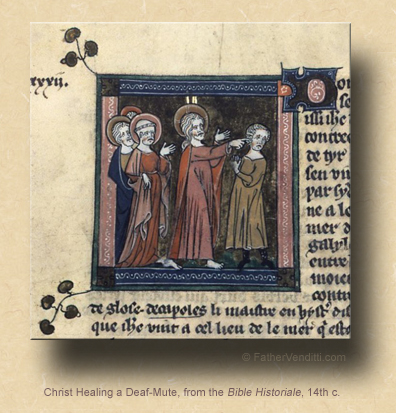 xxxii.
se
issi ihc
contree
de tyr
sen vint
par syd
ne a le
mer d
galyl
entre
moien
contr
de glose. decapoles li maistir en hyst' dit
que ihc vint a cel lieu de le mer q' est
© FatherVenditti.com
Christ Healing a Deaf-Mute, from the Bible Historiale, 14th c.